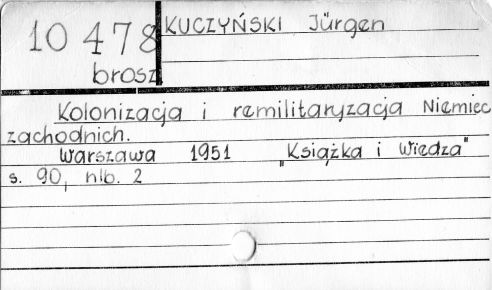 10 478
brosz
KUCZYŃSKI Jürgen
Kolonizacja i remilitaryzacja Niemiec
zachodnich.
Warszawa 1951 „Książka i Wiedza"
s. 90, nlb. 2